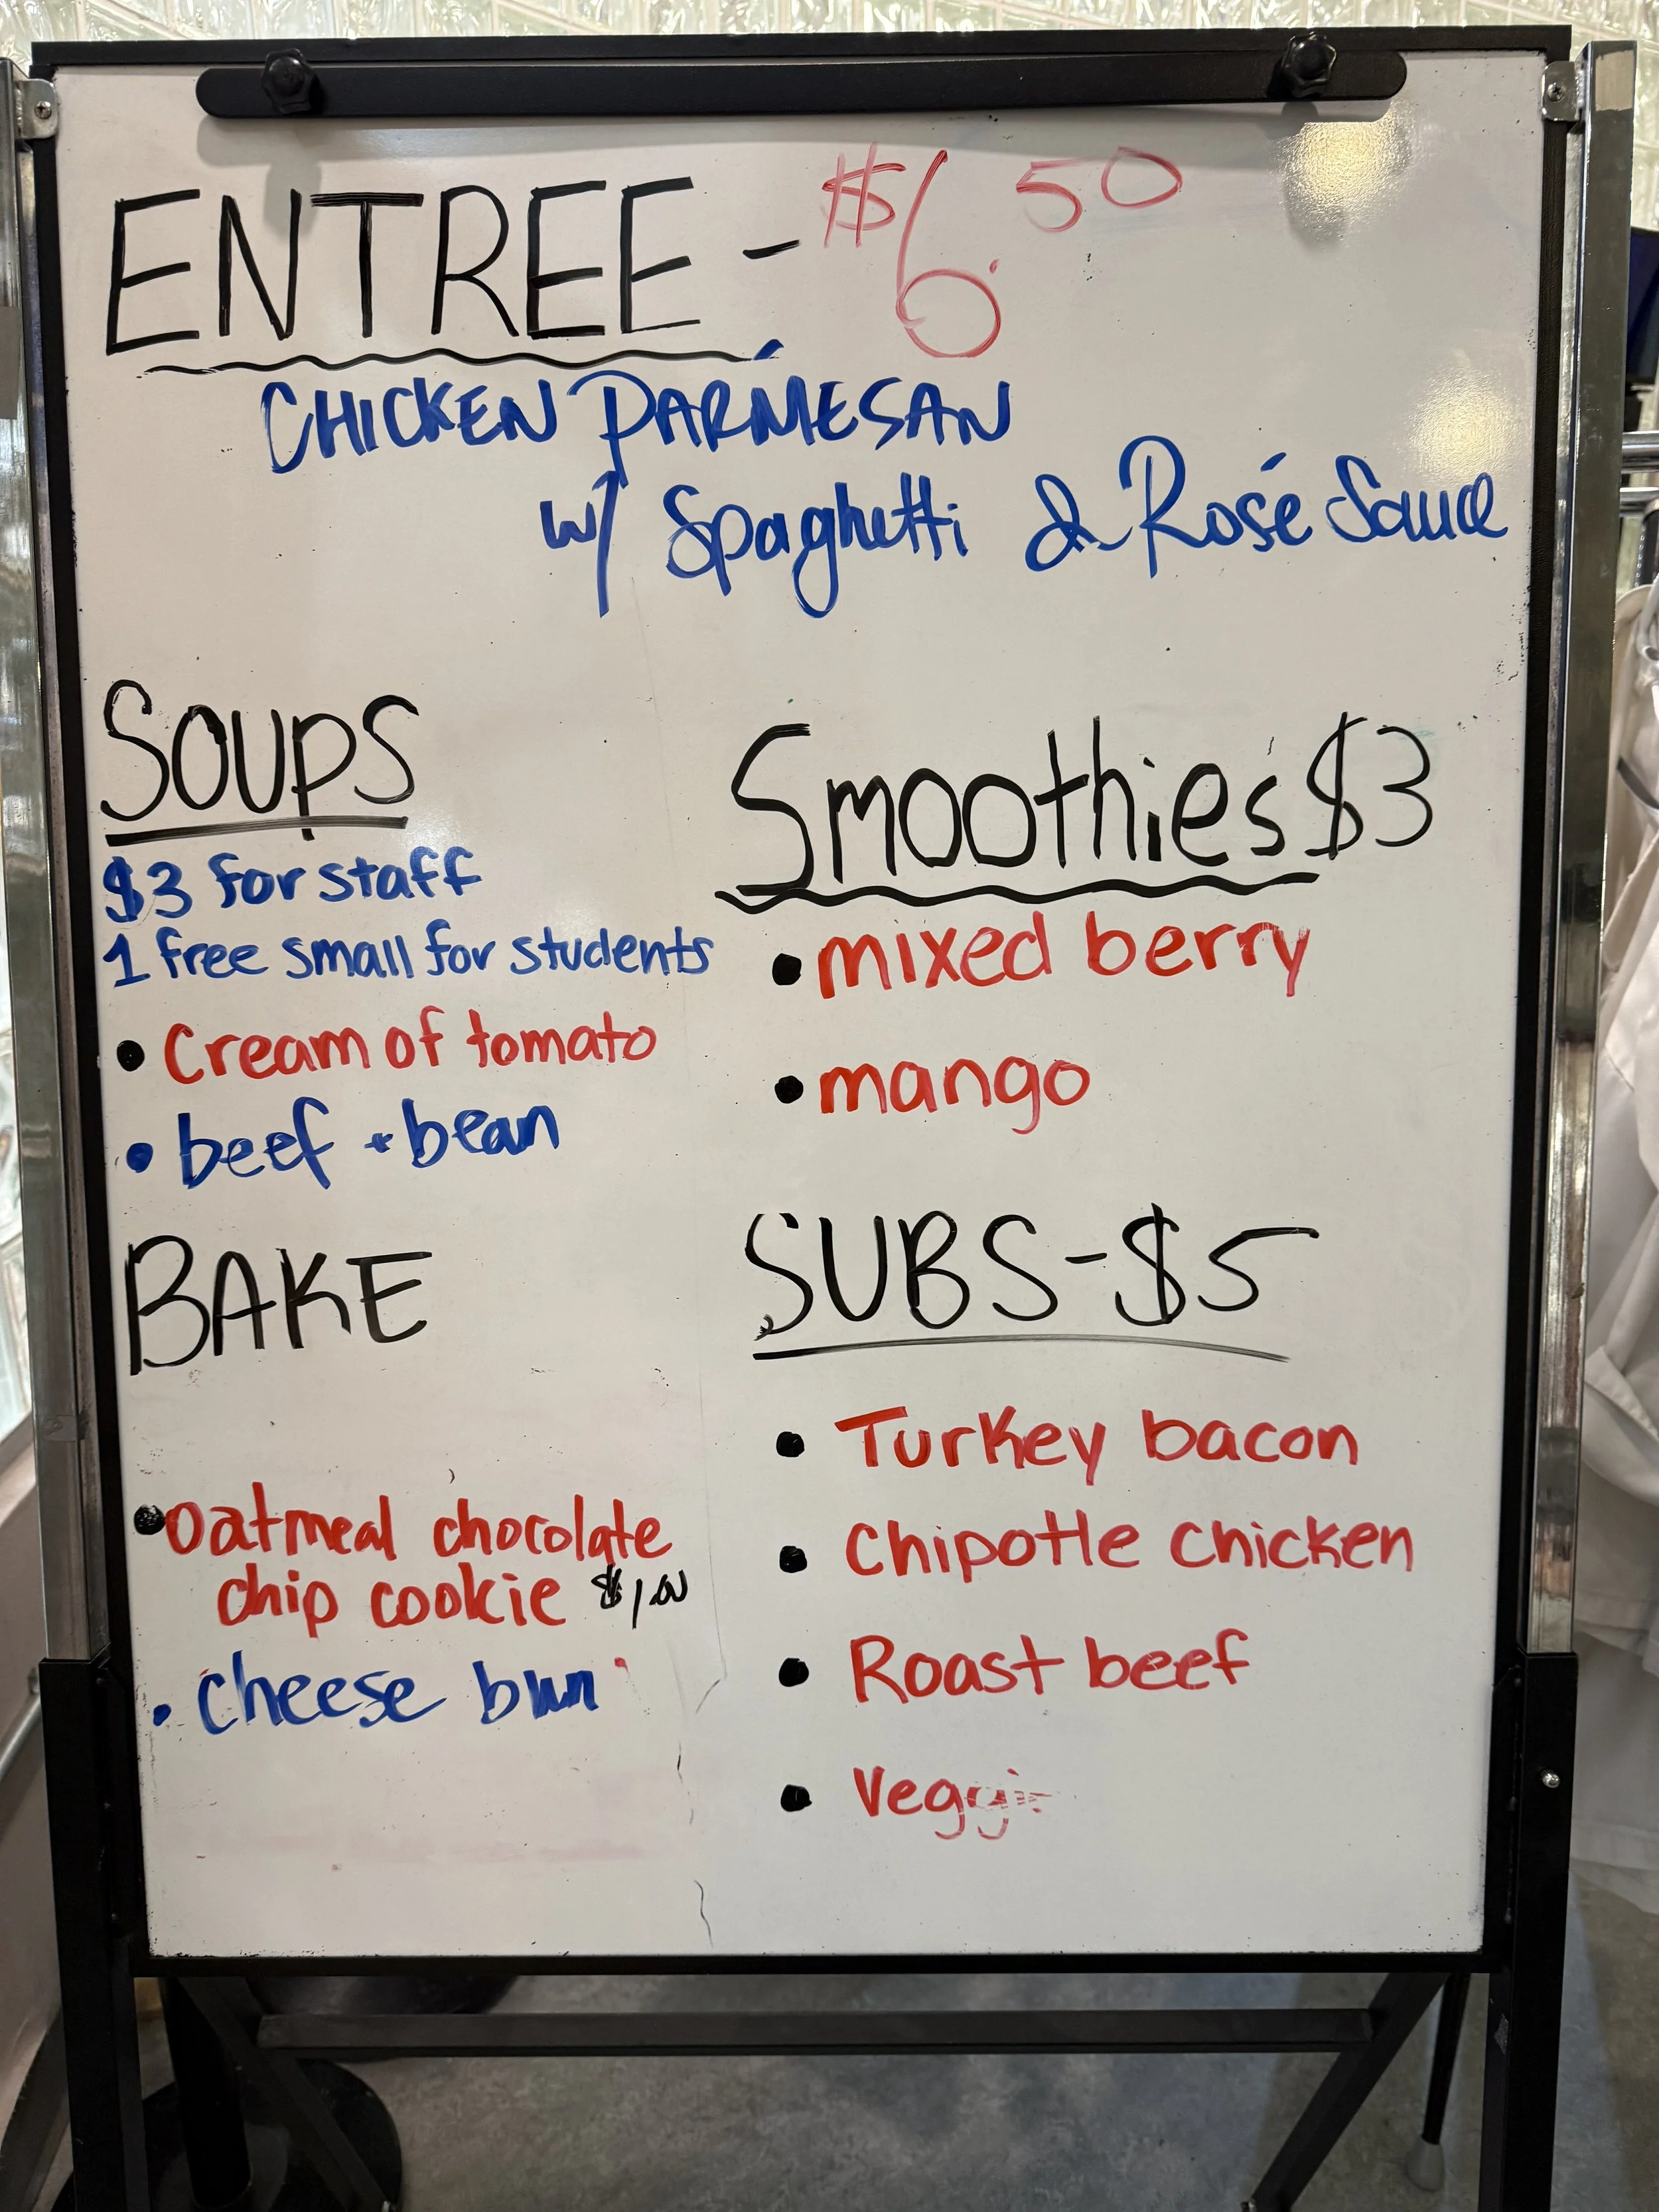 ENTREE - $6.50
CHICKEN PARMESAN
w/ Spaghetti & Rosé Sauce
Soups
$3 for staff
1 free small for students
• Cream of tomato
• beef + bean
BAKE
• Oatmeal chocolate
chip cookie $1.00
• cheese bun
Smoothies $3
• mixed berry
• mango
SUBS - $5
• Turkey bacon
• Chipotle chicken
• Roast beef
• Veggie